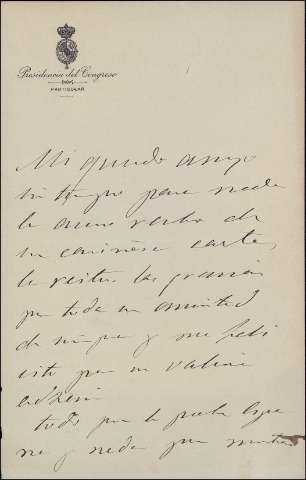 Presidencia del Congreso
PARTICULAR
Mi querido amigo
sin tiempo para nada
le acuso recibo de
su cariñosa carta,
le reitero las gracias
por toda su amistad
de siempre y me felicito
por su valiosa
adhesión
todo por la
no y nada por